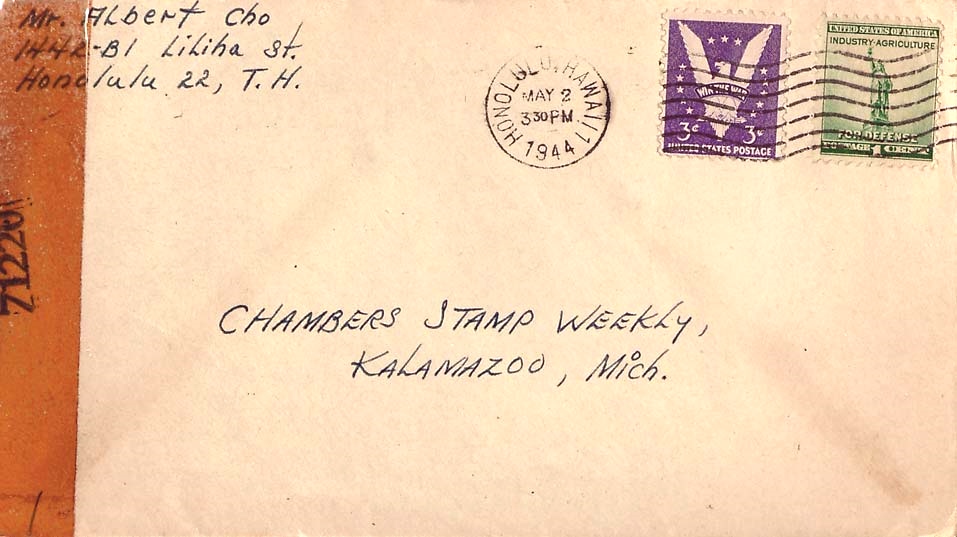 Mr. Albert Cho
1442-B1 Liliha St.
Honolulu 22, T.H.
HONOLULU, HAWAII
MAY 2
3 30 PM
1944
WIN THE WAR
3¢ 3¢
UNITED STATES POSTAGE
UNITED STATES OF AMERICA
INDUSTRY·AGRICULTURE
FOR DEFENSE
POSTAGE 1 CENT
71220
CHAMBERS STAMP WEEKLY,
KALAMAZOO, Mich.